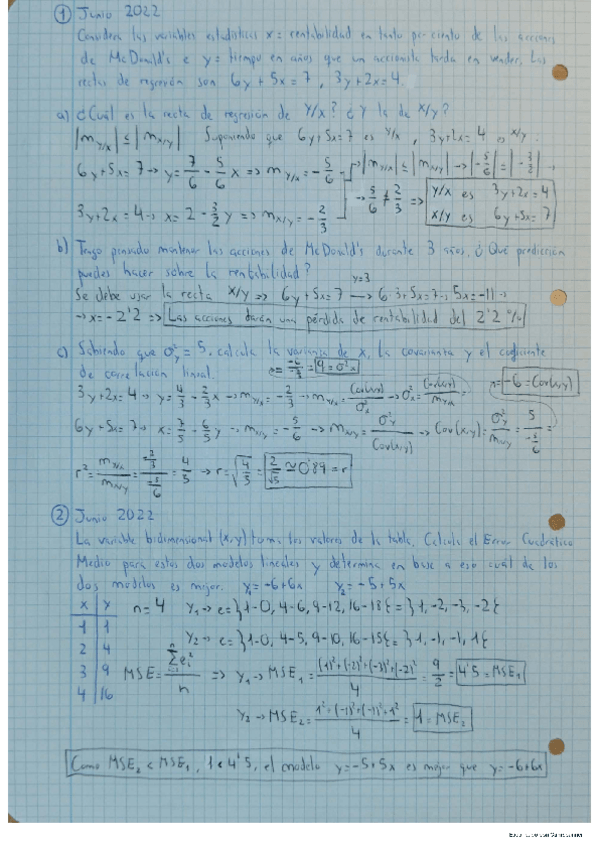 ① Junio 2022
Considera las variables estadísticas x = rentabilidad en tanto por ciento de las acciones
de McDonald's e y = tiempo en años que un accionista tarda en vender. Las
rectas de regresión son 6y + 5x = 7 , 3y + 2x = 4.
a) ¿Cuál es la recta de regresión de Y/x? ¿Y la de x/y?
|m y/x| ≤ |m x/y| Suponiendo que 6y + 5x = 7 es y/x , 3y + 2x = 4 es x/y.
6y + 5x = 7 → y = 7/6 - 5/6 x => m y/x = - 5/6 → |m y/x| ≤ |m x/y| → |-5/6| = |-3/2| →
3y + 2x = 4 → x = 2 - 3/2 y => m x/y = - 2/3 → 5/6 ≰ 2/3 => Y/x es 3y + 2x = 4
x/y es 6y + 5x = 7
b) Tengo pensado mantener las acciones de McDonald's durante 3 años. ¿Qué predicción
puedes hacer sobre la rentabilidad?
y=3
Se debe usar la recta x/y => 6y + 5x = 7 → 6·3 + 5x = 7 → 5x = -11 →
→ x = -2'2 => Las acciones darán una pérdida de rentabilidad del 2'2 %
c) Sabiendo que σ²y = 5, calcula la varianza de x, la covarianza y el coeficiente
de correlación lineal.
= 9 = σ²x
= -6 = Cov(x,y)
3y + 2x = 4 → y = 4/3 - 2/3 x → m y/x = - 2/3 → m y/x = Cov(x,y)/σ²x → σ²x = Cov(x,y)/m y/x =
6y + 5x = 7 → x = 7/5 - 6/5 y → m x/y = - 5/6 → m x/y = σ²y/Cov(x,y) → Cov(x,y) = σ²y/m x/y = 5/(-5/6) =
r² = m y/x / m x/y = (-2/3)/(-5/6) = 4/5 → r = √(4/5) = 2/√5 ≃ 0'89 = r
② Junio 2022
La variable bidimensional (x,y) toma los valores de la tabla. Calcula el Error Cuadrático
Medio para estos dos modelos lineales y determina en base a eso cuál de los
dos modelos es mejor. y₁ = -6 + 6x y₂ = -5 + 5x
x y
1 1
2 4
3 9
4 16
n = 4 Y₁ → e = }1-0, 4-6, 9-12, 16-18{ = }1, -2, -3, -2{
Y₂ → e = }1-0, 4-5, 9-10, 16-15{ = }1, -1, -1, 1{
MSE = Σei²/n => Y₁ → MSE₁ = ((1)² + (-2)² + (-3)² + (-2)²)/4 = 9/2 = 4'5 = MSE₁
Y₂ → MSE₂ = (1² + (-1)² + (-1)² + 1²)/4 = 1 = MSE₂
Como MSE₂ < MSE₁ , 1 < 4'5, el modelo y = -5 + 5x es mejor que y = -6 + 6x